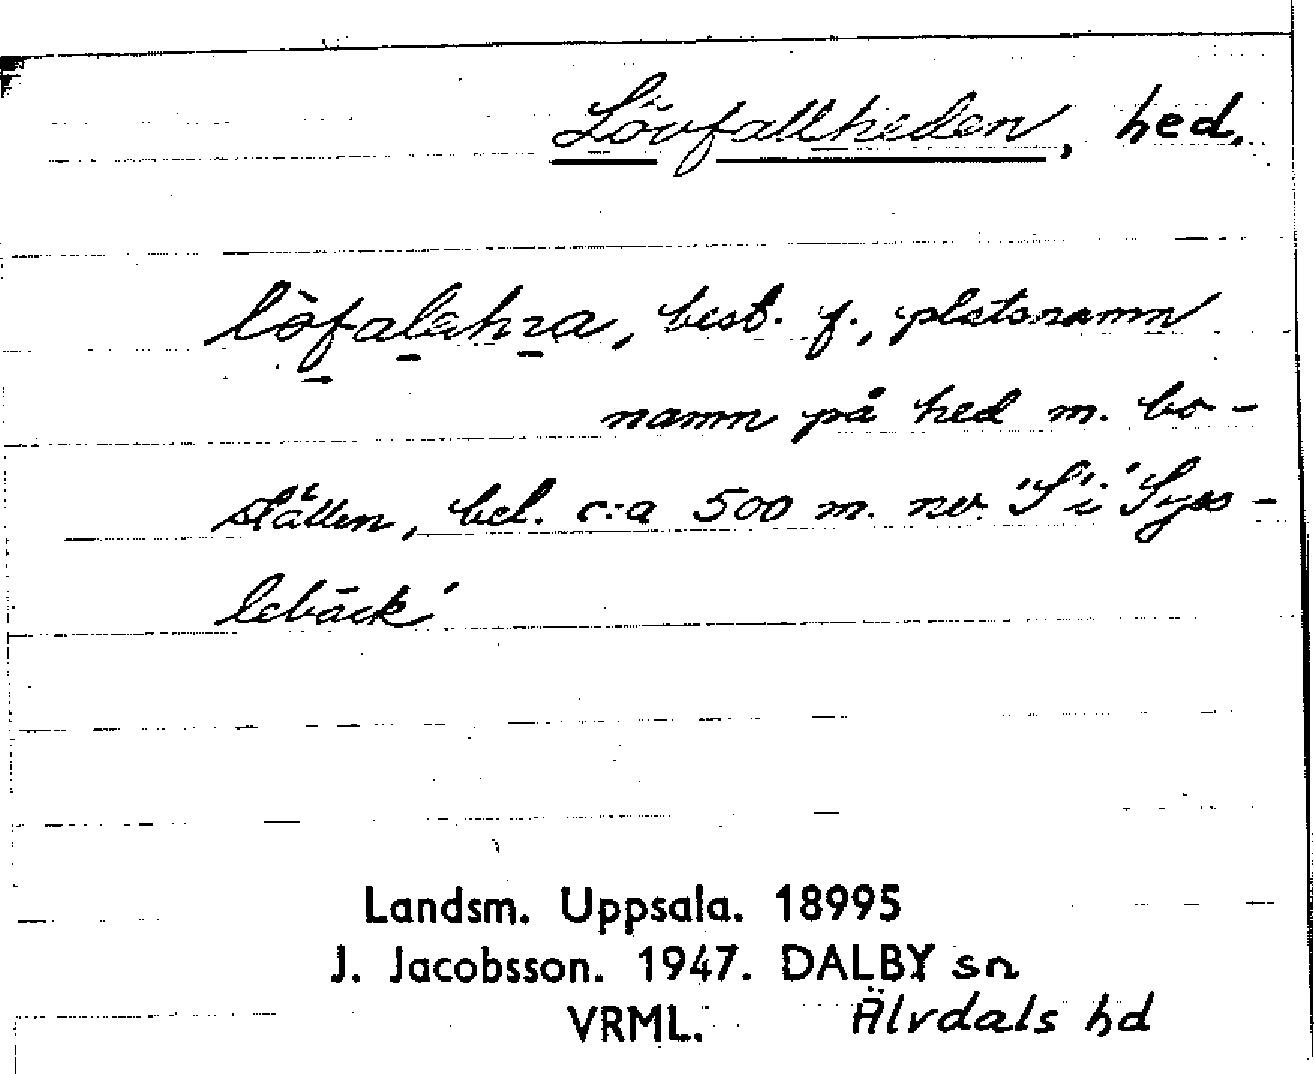 Lövfallheden, hed.
löfalehna, best. f., platsnamn
namn på hed m. bo-
ställen, bel. c:a 500 m. nv. "S" i "Syss-
lebäck"
Landsm. Uppsala. 18995
J. Jacobsson. 1947. DALBY sn
VRML. Älvdals hd